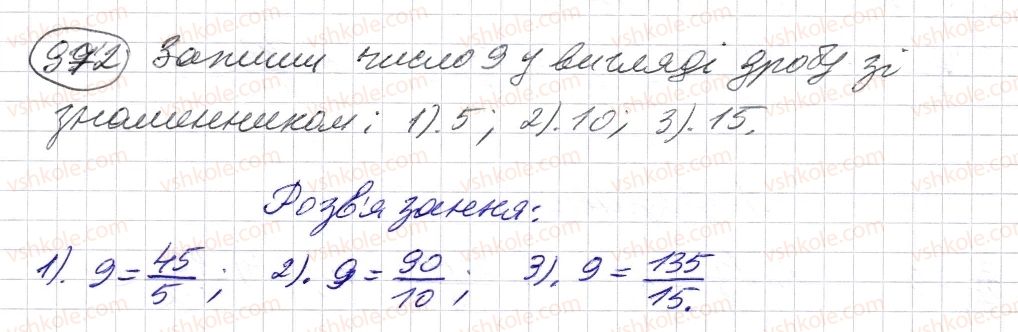 972 Запиши число 9 у вигляді дробу зі
знаменником: 1). 5; 2). 10; 3). 15.
Розв'язання:
1). 9 = 45/5; 2). 9 = 90/10; 3). 9 = 135/15.